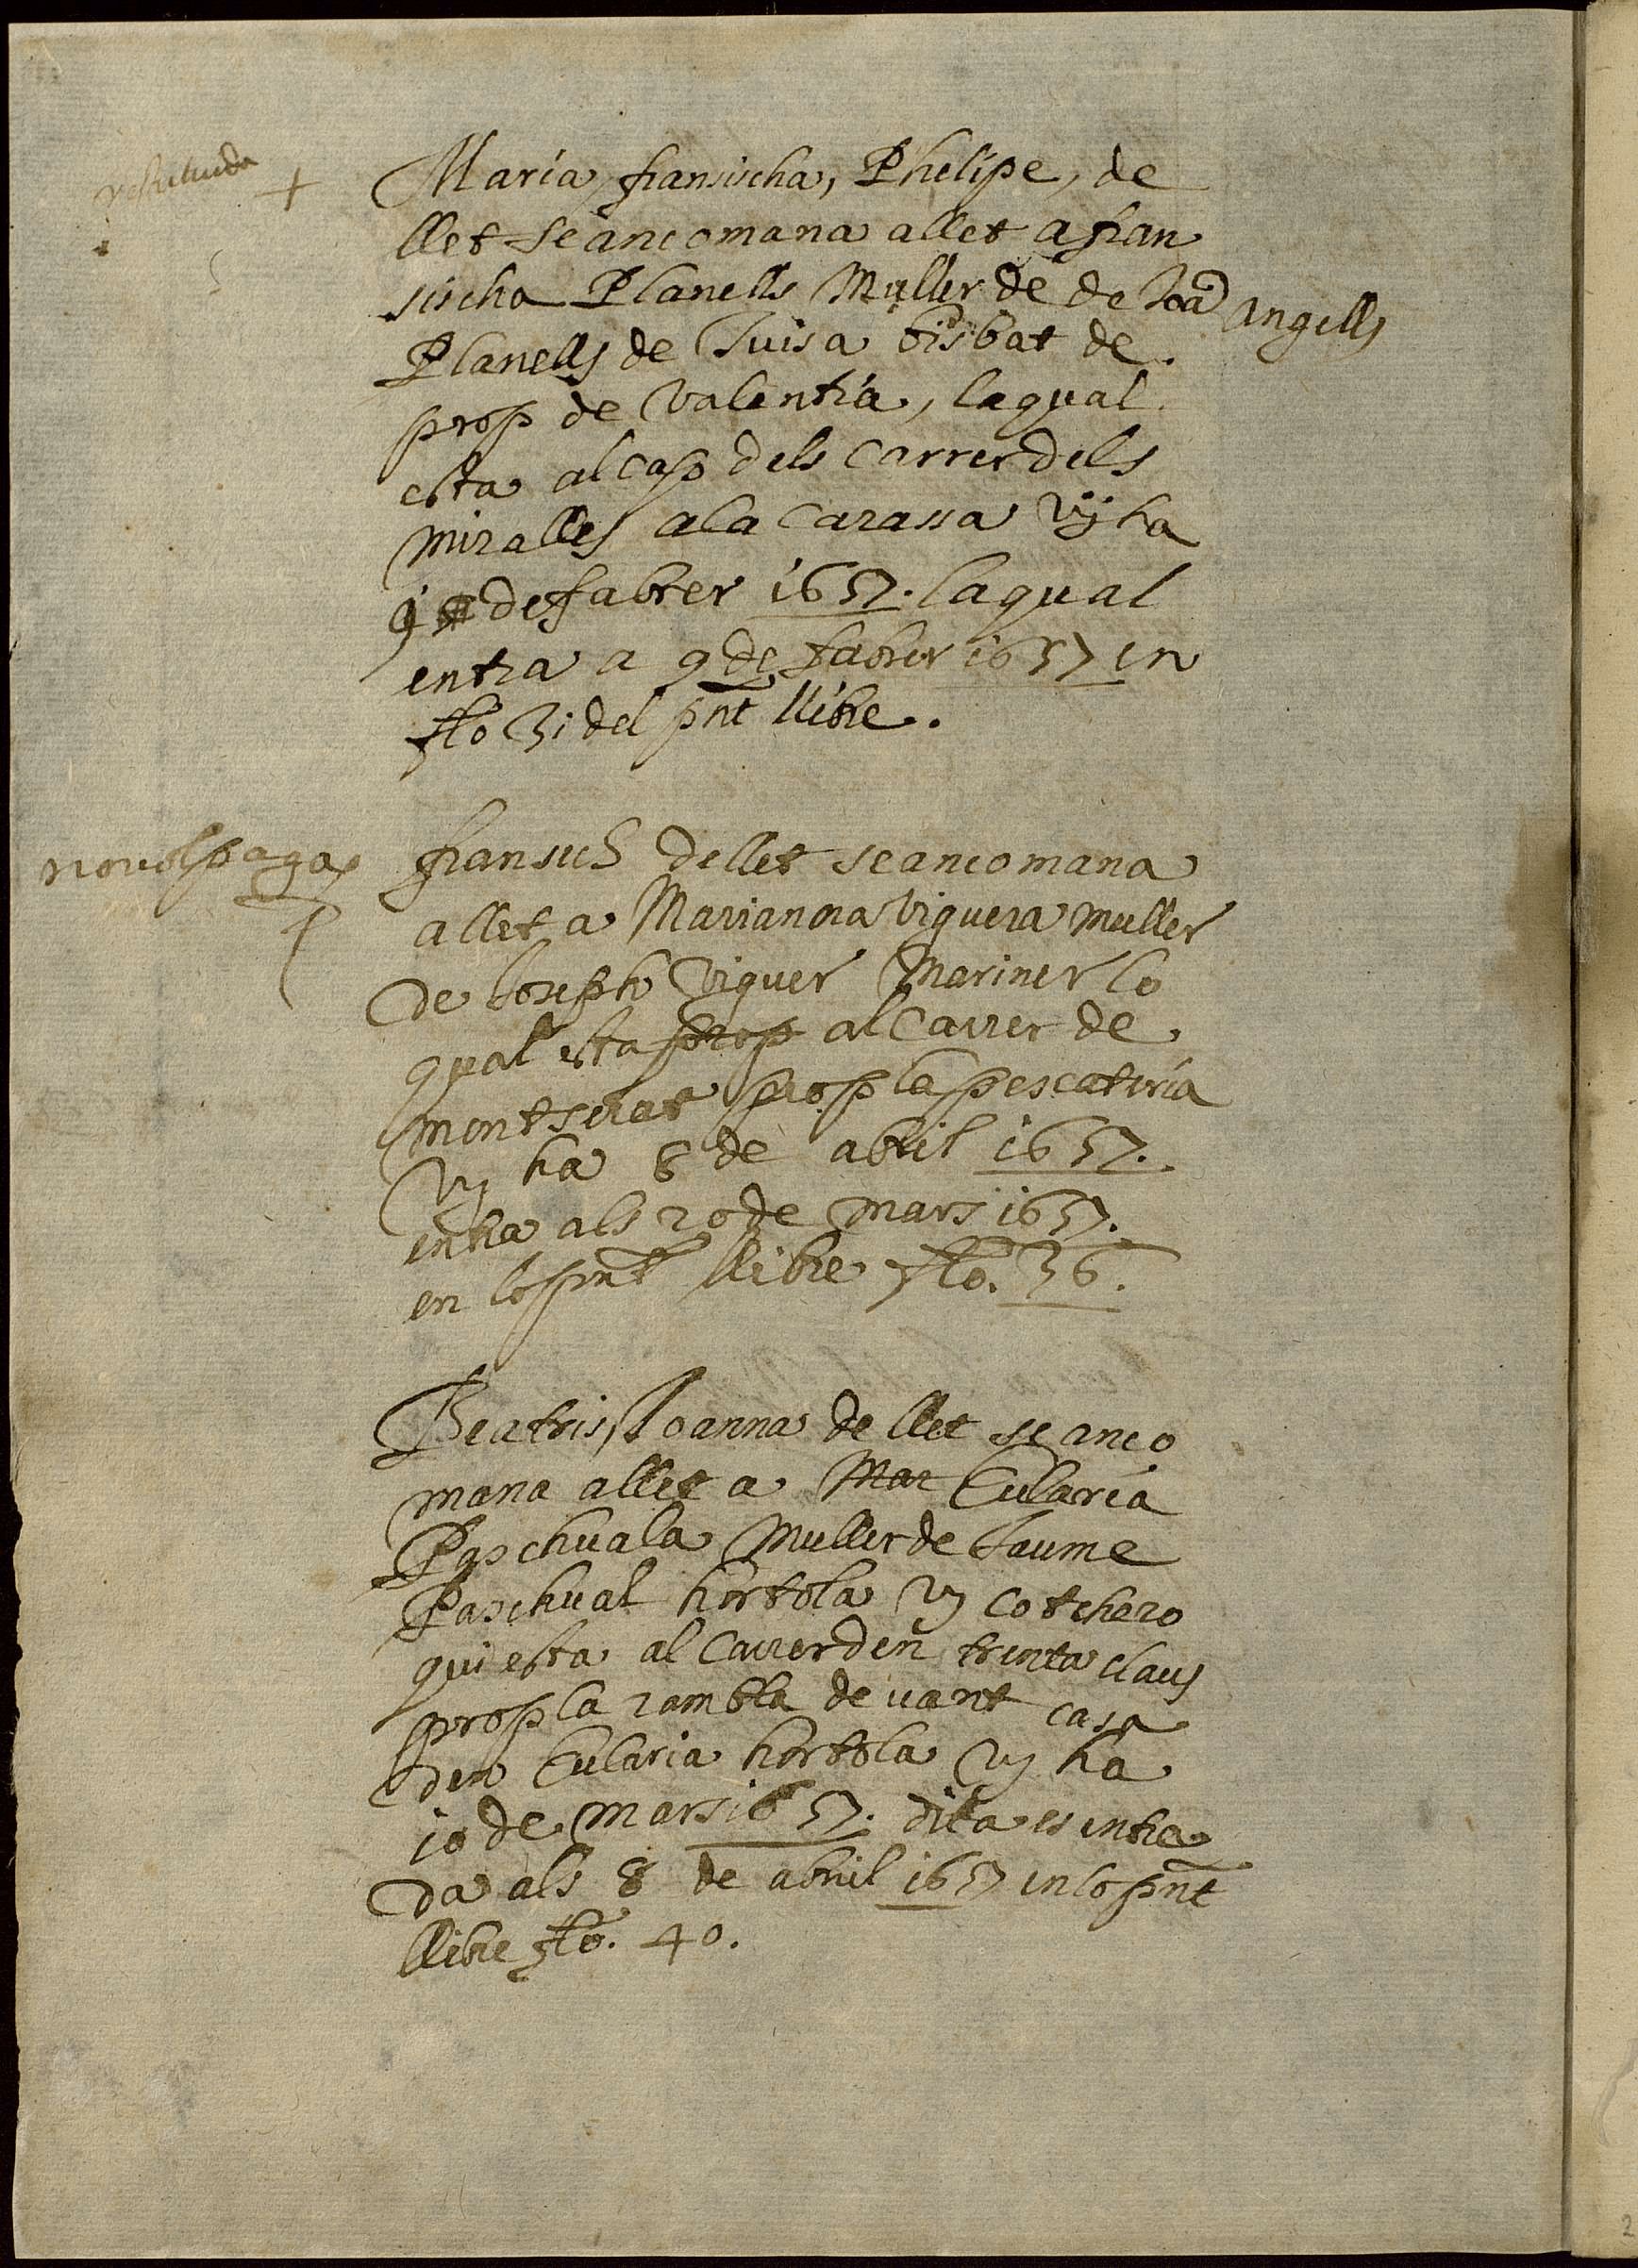 restituida +
Maria, fransischa, Phelipe, de
llet se ancomana a llet a fran
sischa Planells Muller de de Joã Angells
Planells de Suisa bisbat de
prop de Valentia, laqual
esta al cap dels Carrer dels
miralles a la Carassa vy ha
9 de fabrer 1657. laqual
entra a 9 de fabrer 1657 en
flo 31 del pnt llibre.
no vol paga
fransech de llet se ancomana
a llet a Marianna Viguera muller
de Joseph Viguer Mariner lo
qual esta prop al Carrer de
montserat prop la pescateria
vy ha 8 de abril 1657.
entra als 20 de mars 1657.
en lo pnt llibre flo. 36.
Beatris, Joanna de llet se anco
mana a llet a Mar Eularia
Paschuala Muller de Jaume
Paschual hortola vy cotchero
qui esta al Carrer den trenta claus
prop la rambla de uant casa
den Eularia hortola vy ha
10 de mars 1657. dita es entra
da als 8 de abril 1657 en lo pnt
llibre flo. 40.